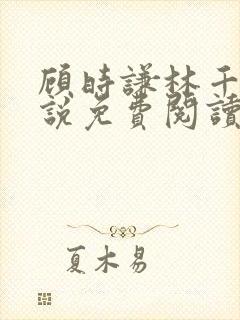 顾時謙林千
説免費閱讀
夏木易